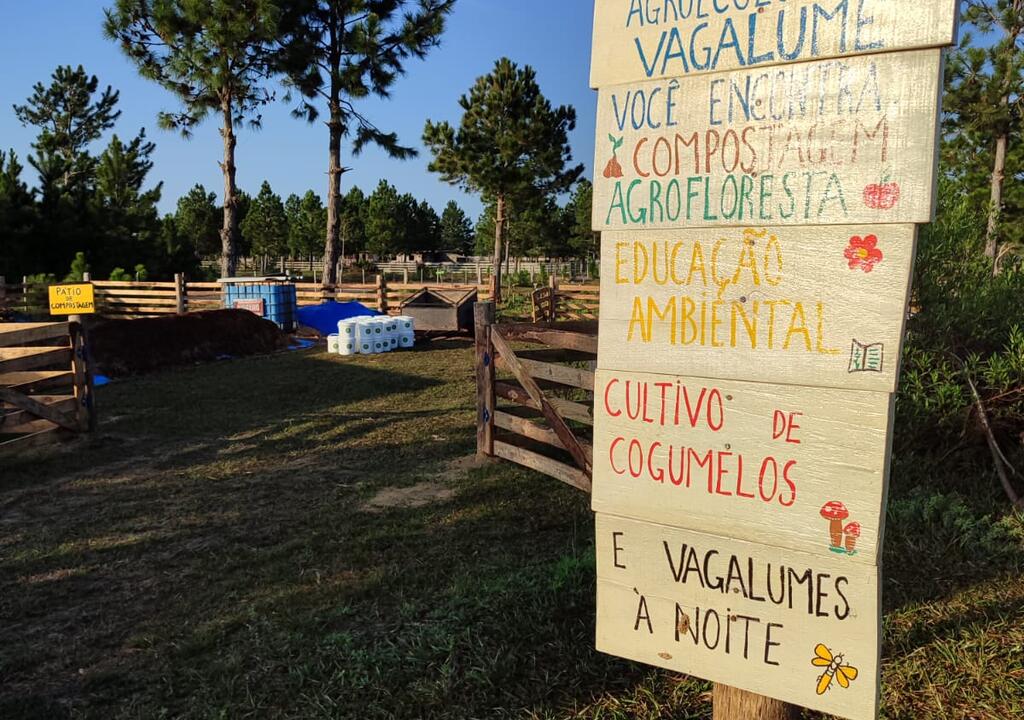 VAGALUME
VOCÊ ENCONTRA
COMPOSTAGEM
AGROFLORESTA
EDUCAÇÃO
AMBIENTAL
CULTIVO DE
COGUMELOS
E VAGALUMES
À NOITE
PÁTIO DE
COMPOSTAGEM